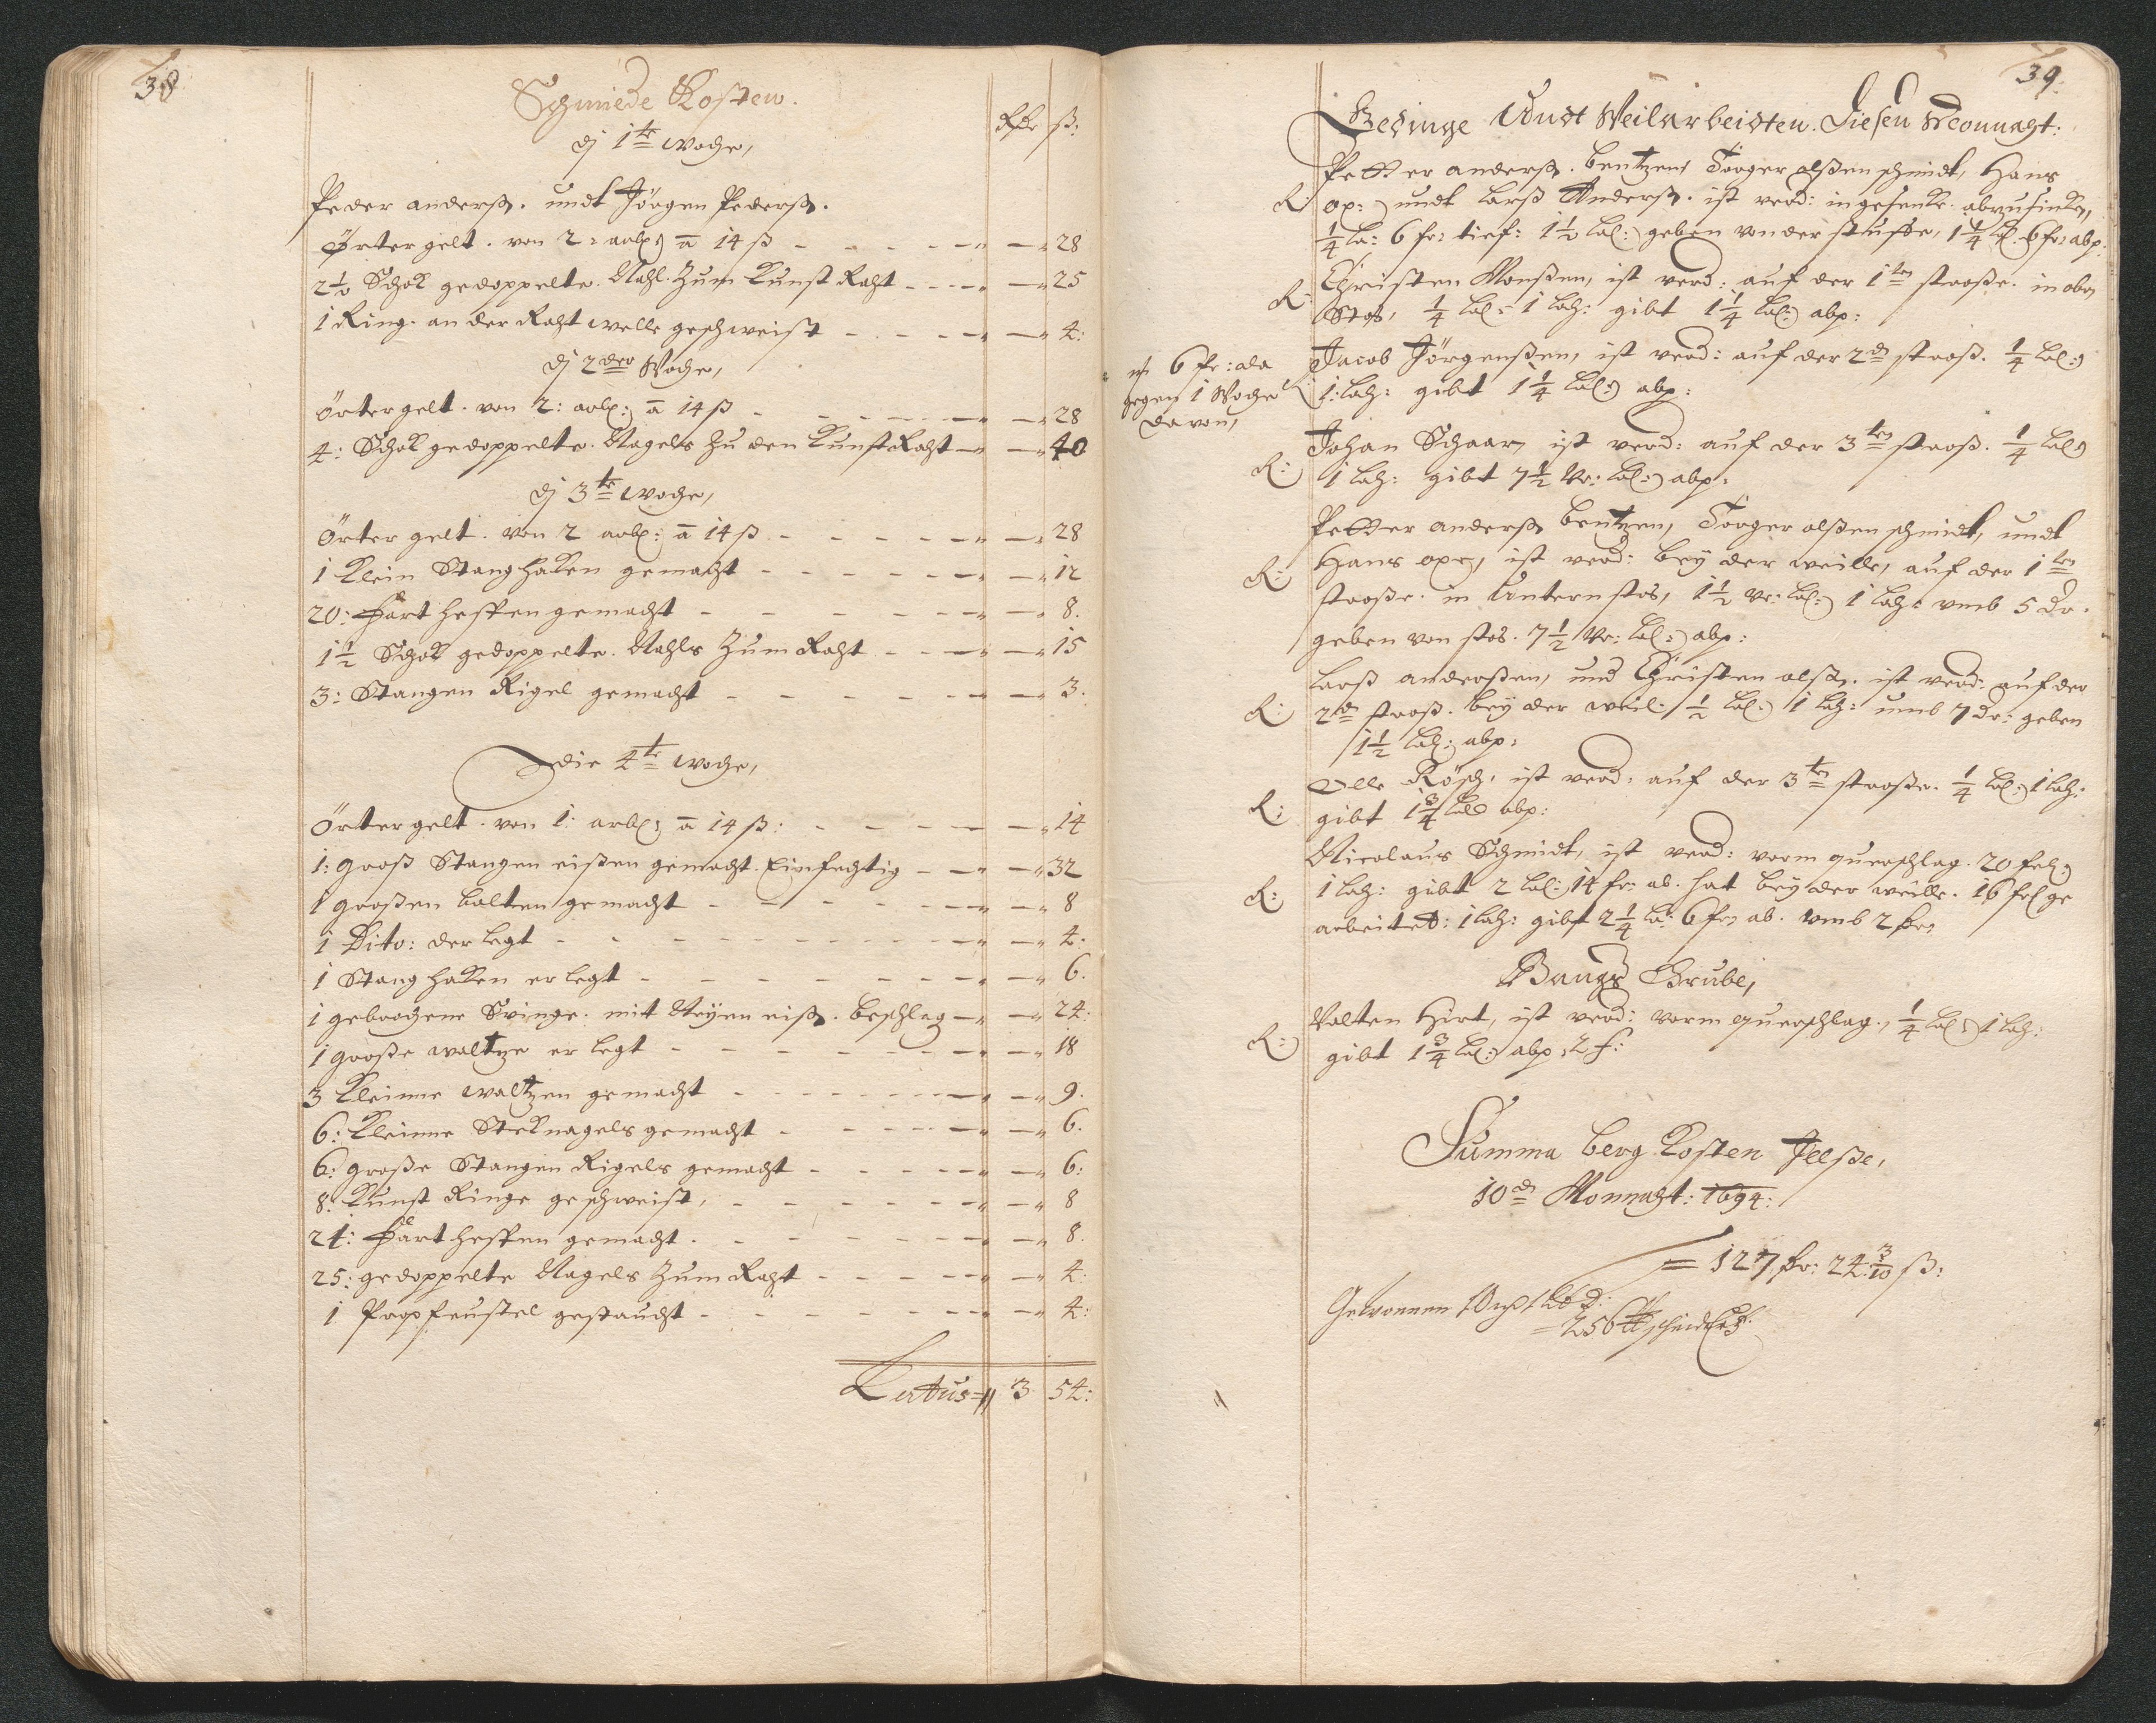 38
Schmiede Kosten.
Rdr ß:
dj 1te woche,
Peder anderß. undt Jörgen Pederß.
Örter gelt. von 2: arb: a 14 ß - - - 28
2½ Schok gedoppelte. Nahl. Zum Kunst Raht - - - 25
1 Ring. an der Raht welle geschweist - - - 4:
dj 2der Woche,
Örter gelt. von 2: arb: a 14 ß - - - 28
4: Schok gedoppelte. Nagels zu den Kunst Raht - - 40
dj 3te woche,
Örter gelt. von 2 arb: a 14 ß - - - 28
1 Klein Stang haken gemacht - - - 12
20: fart heffen gemacht - - - 8.
1½ Schok gedoppelte. Nahls Zum Raht - - - 15
3: Stangen Rigel gemacht - - - 3.
die 4te woche,
Örter gelt. von 1: arb: a 14 ß: - - - 14
1: groß Stangen eißen gemacht. Einfechtig - - - 32
1 großen bolten gemacht - - - 8
1 Dito: der legt - - - 4:
1 Stang haken er legt - - - 6.
1 gebrochene Svinge. mit Neyen eiß. beschlag - - 24:
1 große waltze er legt - - - 18
3 Kleinne waltzen gemacht - - - 9.
6: Kleinne Steknagels gemacht - - - 6.
6: große Stangen Rigels gemacht - - - 6:
8: Kunst Ringe geschweist, - - - 8
24: fart heffen gemacht. - - - 8.
25: gedoppelte Nagels Zum Raht - - - 4:
1 feustel gestaucht - - - 4:
Latus = 3 54:
39.
Gedinge Undt Weilarbeisten. Diesen Monnagt:
Petter anderß. bentzen, Torger olßen schmidt, Hans
R: ox: undt larß Anderß. ist verd: in gesenke. abzusinken,
¼ la: 6 fr: tief: 1½ lal: geben von der stuffe, 1¼ l: 6 fr: abp:
Christen Monßen, ist verd: auf der 1ten straße. in oben
R: Stos, ¼ lal: 1 lah: gibt 1¼ lal: abp:
6 fr: ada
gegen 1 Woche
davon,
Jacob Jörgenßen, ist verd: auf der 2dn straß. ¼ lal:
1: lah: gibt 1¼ lal: abp:
Johan Schaar, ist verd: auf der 3ten straß. ¼ lal:
R: 1 lah: gibt 7½ Vr: lal: abp:
Petter anderß bentzen, Torger olßen schmidt, undt
R: Hans oxe, ist verd: bey der weille, auf der 1ten
straße. in Untern stos, 1½ Vr: lal: 1 lah: vmb 5 dr.
geben von stos. 7½ Vr: lal: abp:
larß anderßen, und Christen olß. ist verd: auf der
R: 2dn straß. bey der weil: ½ lal: 1 lah: umb 7 dr: geben
1½ lal: abp:
Olle Rösch, ist verd: auf der 3ten straße. ¼ lal: 1 lah:
R: gibt 1¾ lal: abp:
Nicolaus Schmidt, ist verd: vorm querschlag. 20 fr:
R: 1 lah: gibt 2 lal: 14 fr: ab. hat bey der weille. 16 fr: ge
arbeitet: 1 lah: gibt 2¼ la: 6 fr: ab. vmb 2 dr:
Bangs Grube,
Valten Hirt, ist verd: vorm querschlag., ¼ lal: 1 lah:
R: gibt 1¾ lal: abp: 2 f:
Summa berg Kosten Jelße,
10dn Monnagt: 1694:
= 127 dr: 24 3/10 ß:
Gewonnen
= 256 scheiderz